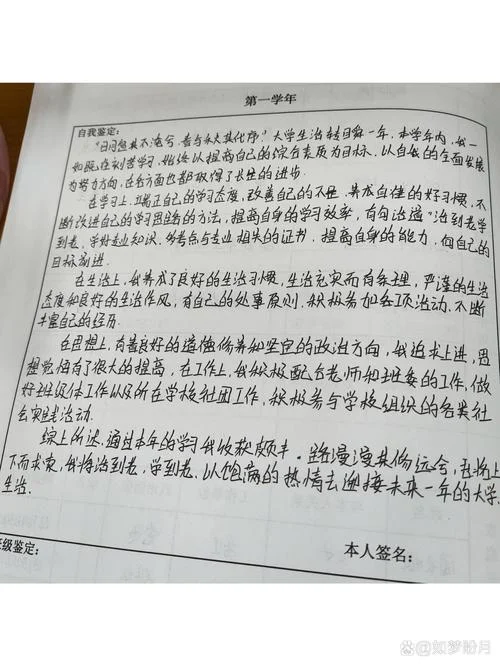 第一学年
自我鉴定:
"日月忽其不淹兮,春与秋其代序。"大学生活转目算一年,本学年内,我一
如既往刻苦学习,始终以提高自己的综合素质为目标,以自我的全面发展
为努力方向,在各方面也都取得了长足的进步。
在学习上,端正自己的学习态度,改善自己的不足,养成自律的好习惯,不
断改进自己的学习思路的方法,提高自身的学习效率,有句话道"活到老学
到老,学好专业知识,多考点与专业相关的证书,提高自身的能力,向自己的
目标前进.
在生活上,我养成了良好的生活习惯,生活充实而有条理,严谨的生活
态度和良好的生活作风,有自己的处事原则.积极参加各项活动,不断
丰富自己的经历.
在思想上,有着良好的道德修养和坚定的政治方向,我追求上进,思
想觉悟有了很大的提高,在工作上,我积极配合老师和班委的工作,做
好班级体工作以及所在学校社团工作,积极参与学校组织的各类社
会实践活动.
综上所述,通过本年的学习我收获颇丰.路漫漫其修远兮,吾将上
下而求索,我将活到老,学到老,以饱满的热情去迎接未来一年的大学
生活.
级鉴定:
本人签名:
@如梦盼月